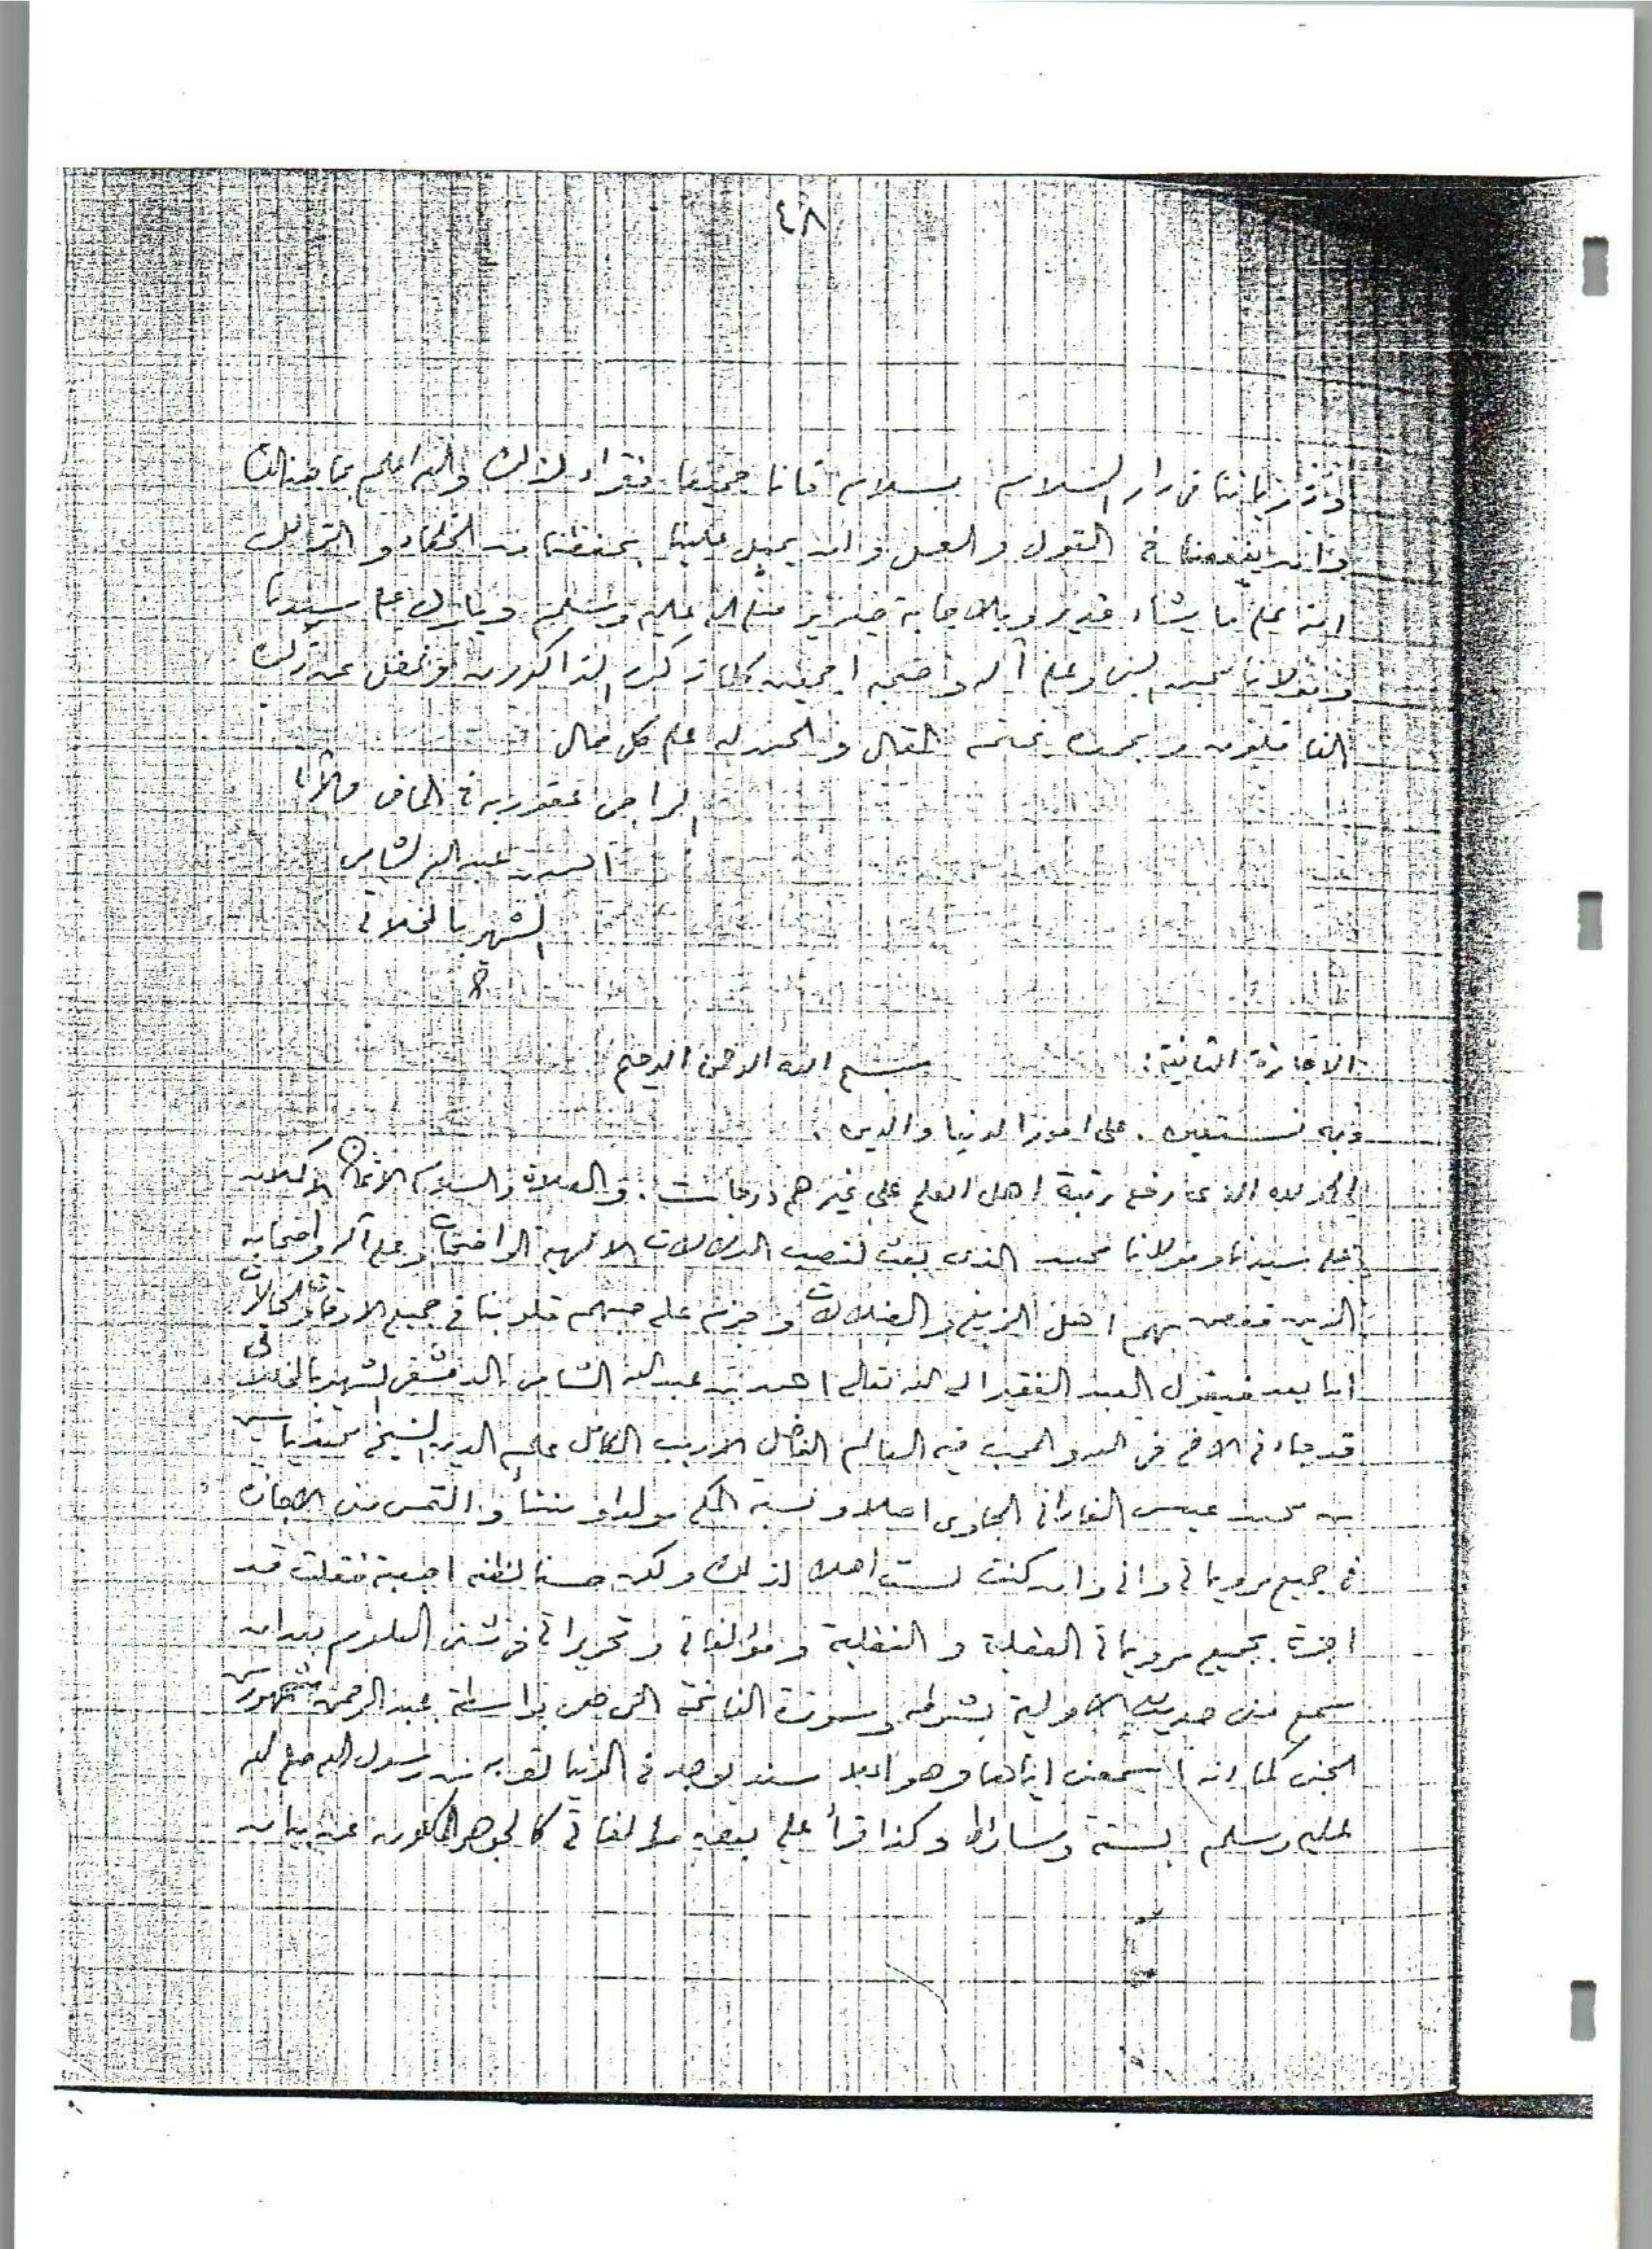 ٤٨
وذرياتنا في دار السلام بسلام فانا جميعا فقراء لذلك والله اعلم بما هنالك
وان ينفعنا في القول والعمل وان يميل علينا بحفظنا من الخطاء والزلل
انه على ما يشاء قدير وبالاجابة جدير صلى الله عليه وسلم وبارك على سيدنا
ومولانا محمد وعلى آله واصحبه اجمعين كلما ذكره الذاكرون وغفل عن ذكره
الغافلون وبحمده نختم المقال والحمد لله على كل حال
الراجي عفو ربه في الماضي والآتي
احمد بن عبد الله الشامي
الشهير بالمخللاتي
الاجازة الثانية: بسم الله الرحمن الرحيم
وبه نستعين . على امور الدنيا والدين .
الحمد لله الذي رفع رتبة اهل العلم على غيرهم درجات . والصلاة والسلام الاتمان الاكملان
على سيدنا ومولانا محمد الذي بعث لنصب الدلالات الالهية الواضحات وعلى آله واصحابه
الذين قصم بهم اهل الزيغ والضلالات وجزم على حبهم قلوبنا في جميع الاوقات والحالات
اما بعد فيقول العبد الفقير الى الله تعالى احمد بن عبد الله الشامي الدمشقي الشهير بالمخللاتي
قد جاءني الاخ في الله والمحب فيه العالم الفاضل الاريب الكامل علم الدين الشيخ محمد ياسين
بن محمد عيسى الفاداني الجاوي اصلا ونسبة المكي مولدا ومنشأ والتمس مني الاجازة
في جميع مروياتي واني وان كنت لست اهلا لذلك ولكن حسنا لظنه اجبته فقلت قد
اجزته بجميع مروياتي العقلية والنقلية ومؤلفاتي وتحريراتي في شتى العلوم بعد ان
سمع مني حديث الاولية بشرطه وسورة الفاتحة التي هي بواسطة عبد الرحمن شمهورش
الجني كما انه اسمعني اياها وهو اعلا سند يوجد في الدنيا لقربه من رسول الله صلى الله
عليه وسلم بستة وسائط وكذا قرأ علي بعض مؤلفاتي كالجوهر المكنون عن بيان